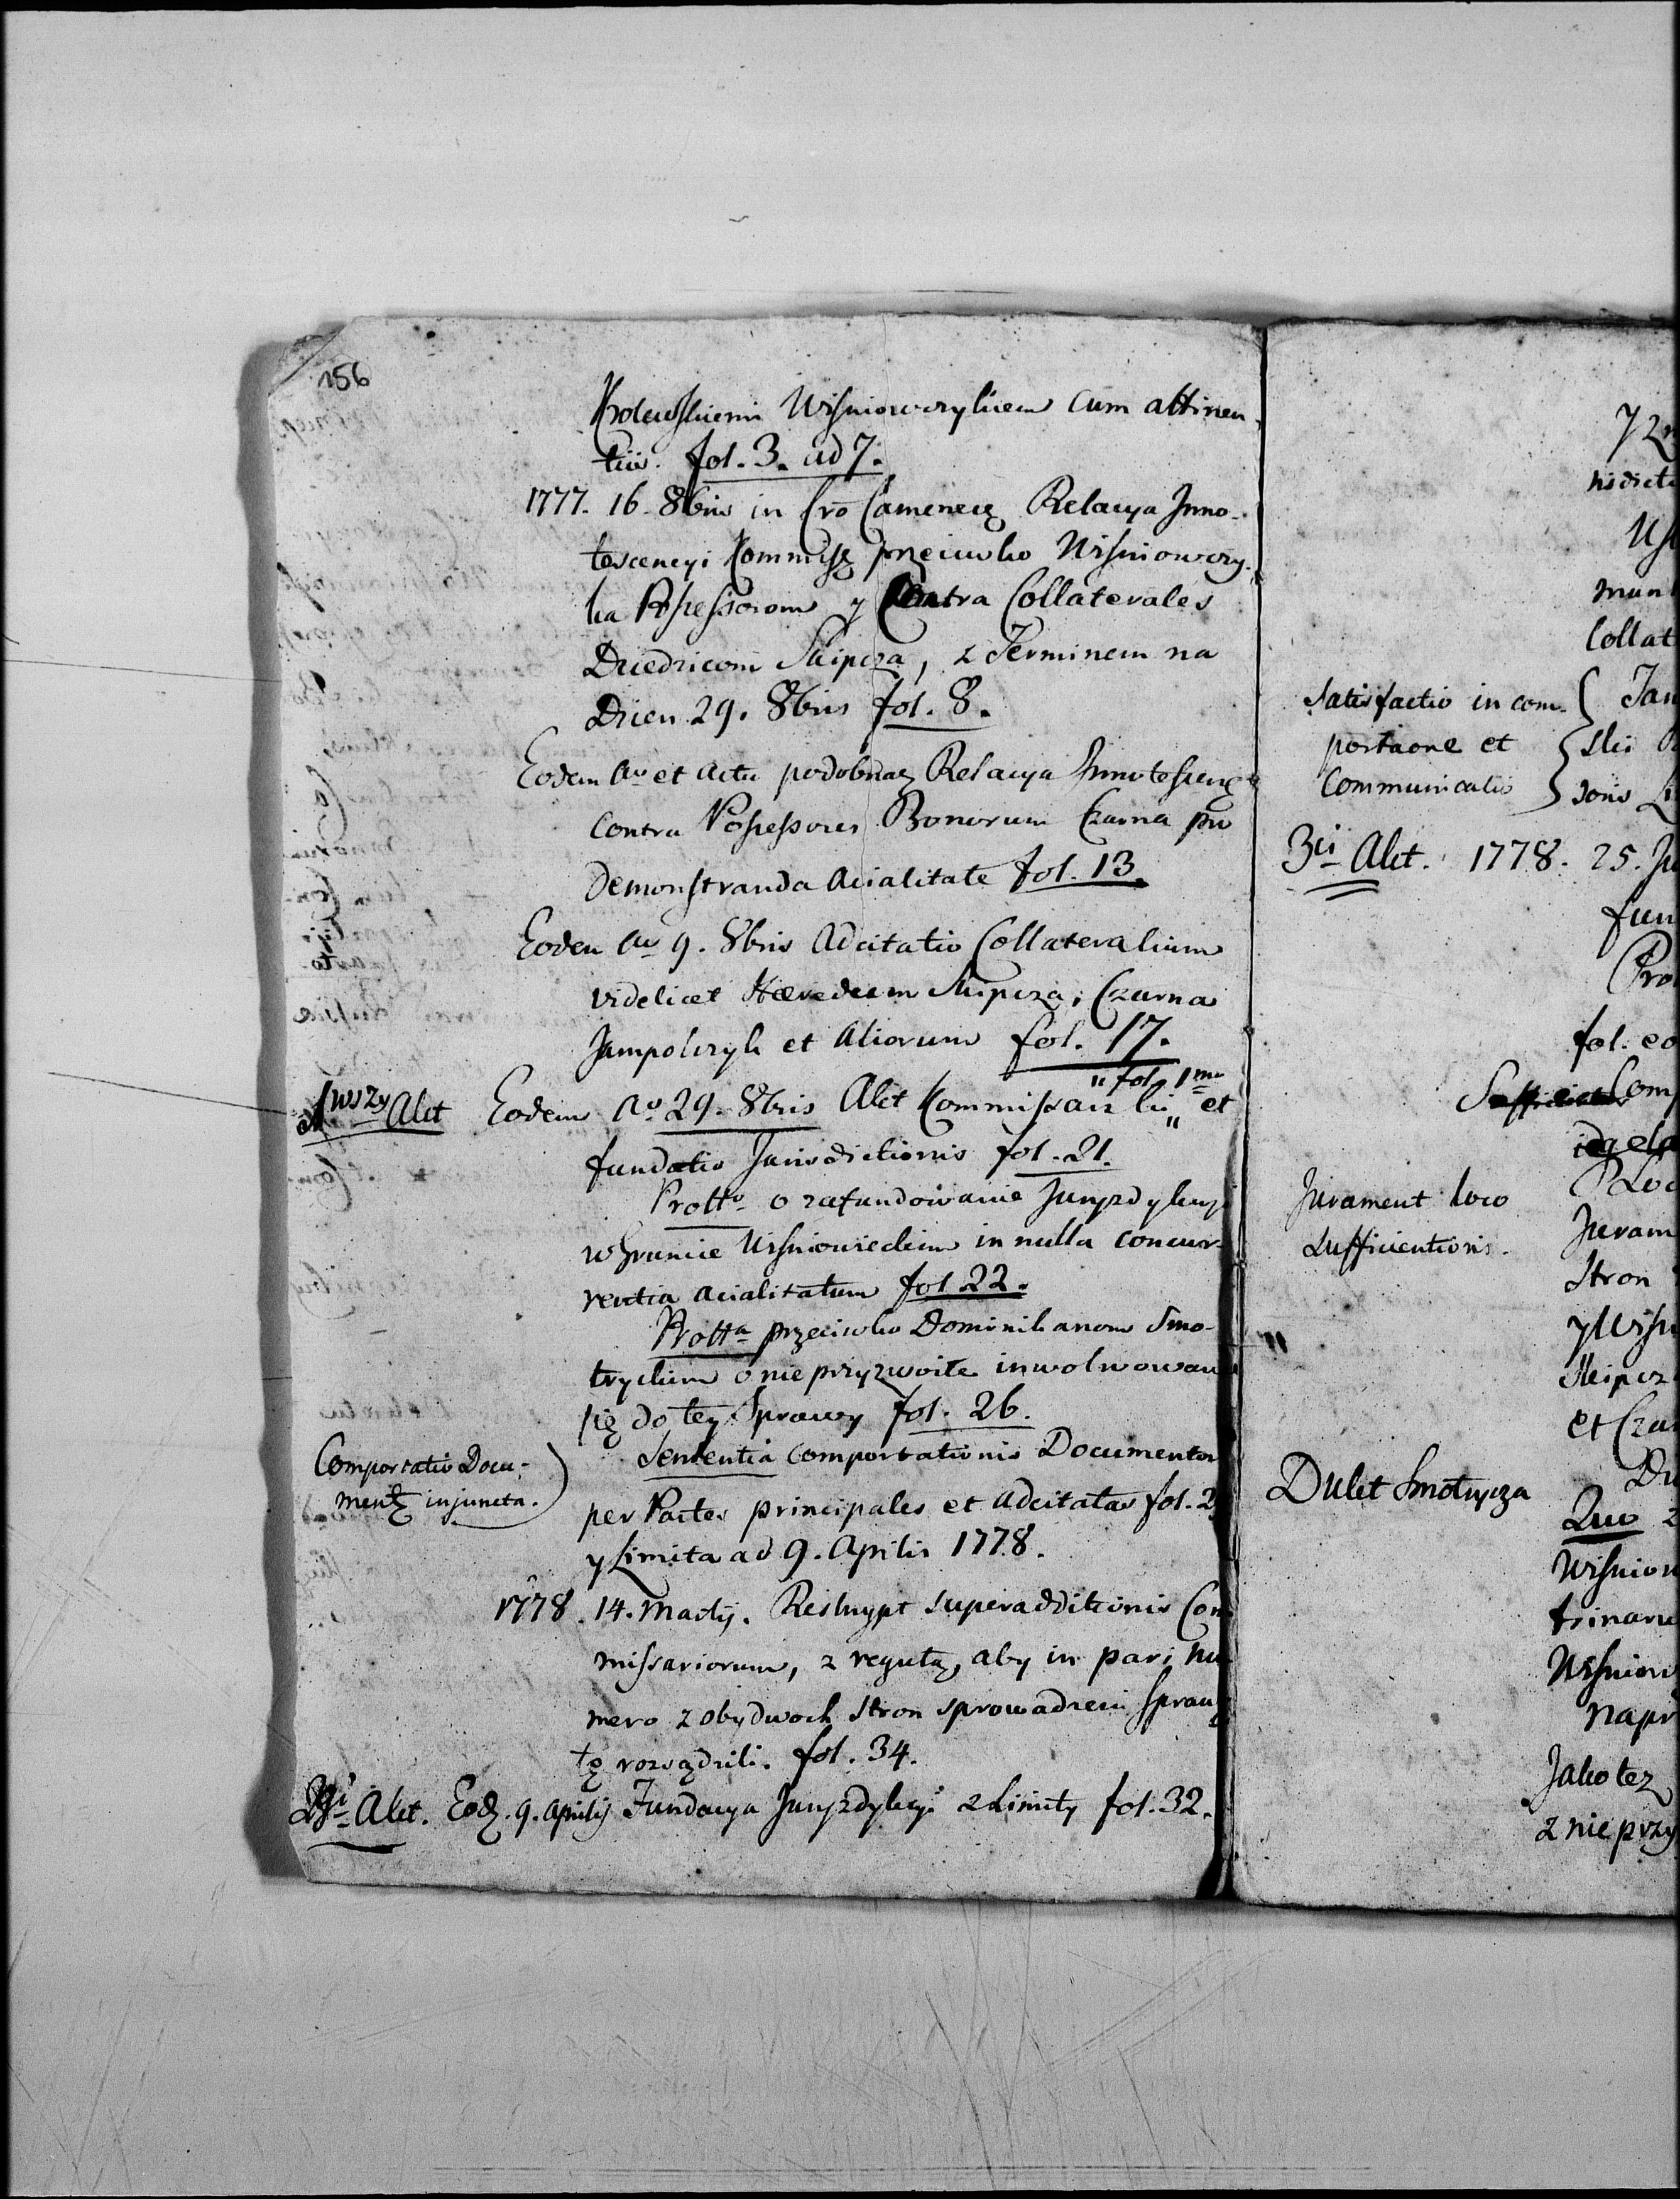 156
Wisniowczykiem cum attinen-
tiis. fol. 3. ad 7.
1777. 16. 8bris in Cro Camenecę Relacya Inno-
tescencyi Kommissę przeciwko Wisniowczy-
ka Possessorom y Contra Collaterales
Dziedzicom Skipcza, z Terminem na
Dzien 29. 8bris fol. 8.
Eodem Ao et Actu podobnaż Relacya
contra Possessores Bonorum Czarna pro
demonstranda Acialitate fol. 13.
Eodem Ao 9. 8bris Adcitatio Collateralium
videlicet Hæredum Skipcza, Czarna
Jampolczyk et Aliorum fol. 17.
" fol. 1mo
1wszy Akt Eodem Ao 29. 8bris Akt Kommissarski " et
fundatio Jurisdictionis fol. 21.
Protto o zafundowanie Juryzdykcyi
w Gruncie Wisniowieckim in nulla concur-
rentia acialitatum fol 22.
Protta przeciwko Dominikanom Smo-
tryckim o nieprzyzwoite inwolwowan
się do tey Sprawy fol. 26.
Comportatio Docu-
mentę injuncta.
Sententia comportationis Documentor
per Partes principales et adcitatas fol. 2
y Limita ad 9. Aprilis 1778.
1778. 14. Martij. Reskrypt superadditionis Com
missariorum, z regułą, aby in pari nu
mero z obydwoch stron sprowadzeni sprawę
tę rozsądzili. fol. 34.
2gi Akt. Eodę. 9. Aprilij Fundacya Juryzdykcyi z Limity fol. 32.
y Zn
nsdict
mun
Collat
Satisfactio in com-
portaone et
Communicatis
Jan
3ci Akt. 1778. 25. Ju
fun
Pro
fol. eo
Comp
Jurament loco
Sufficientionis.
Juram
Stron
y Wisn
Skipcz
et Czar
Dukt Smotrycza
Quo z
Wisniow
Wisniow
Napr
Jako tez
z nieprzy